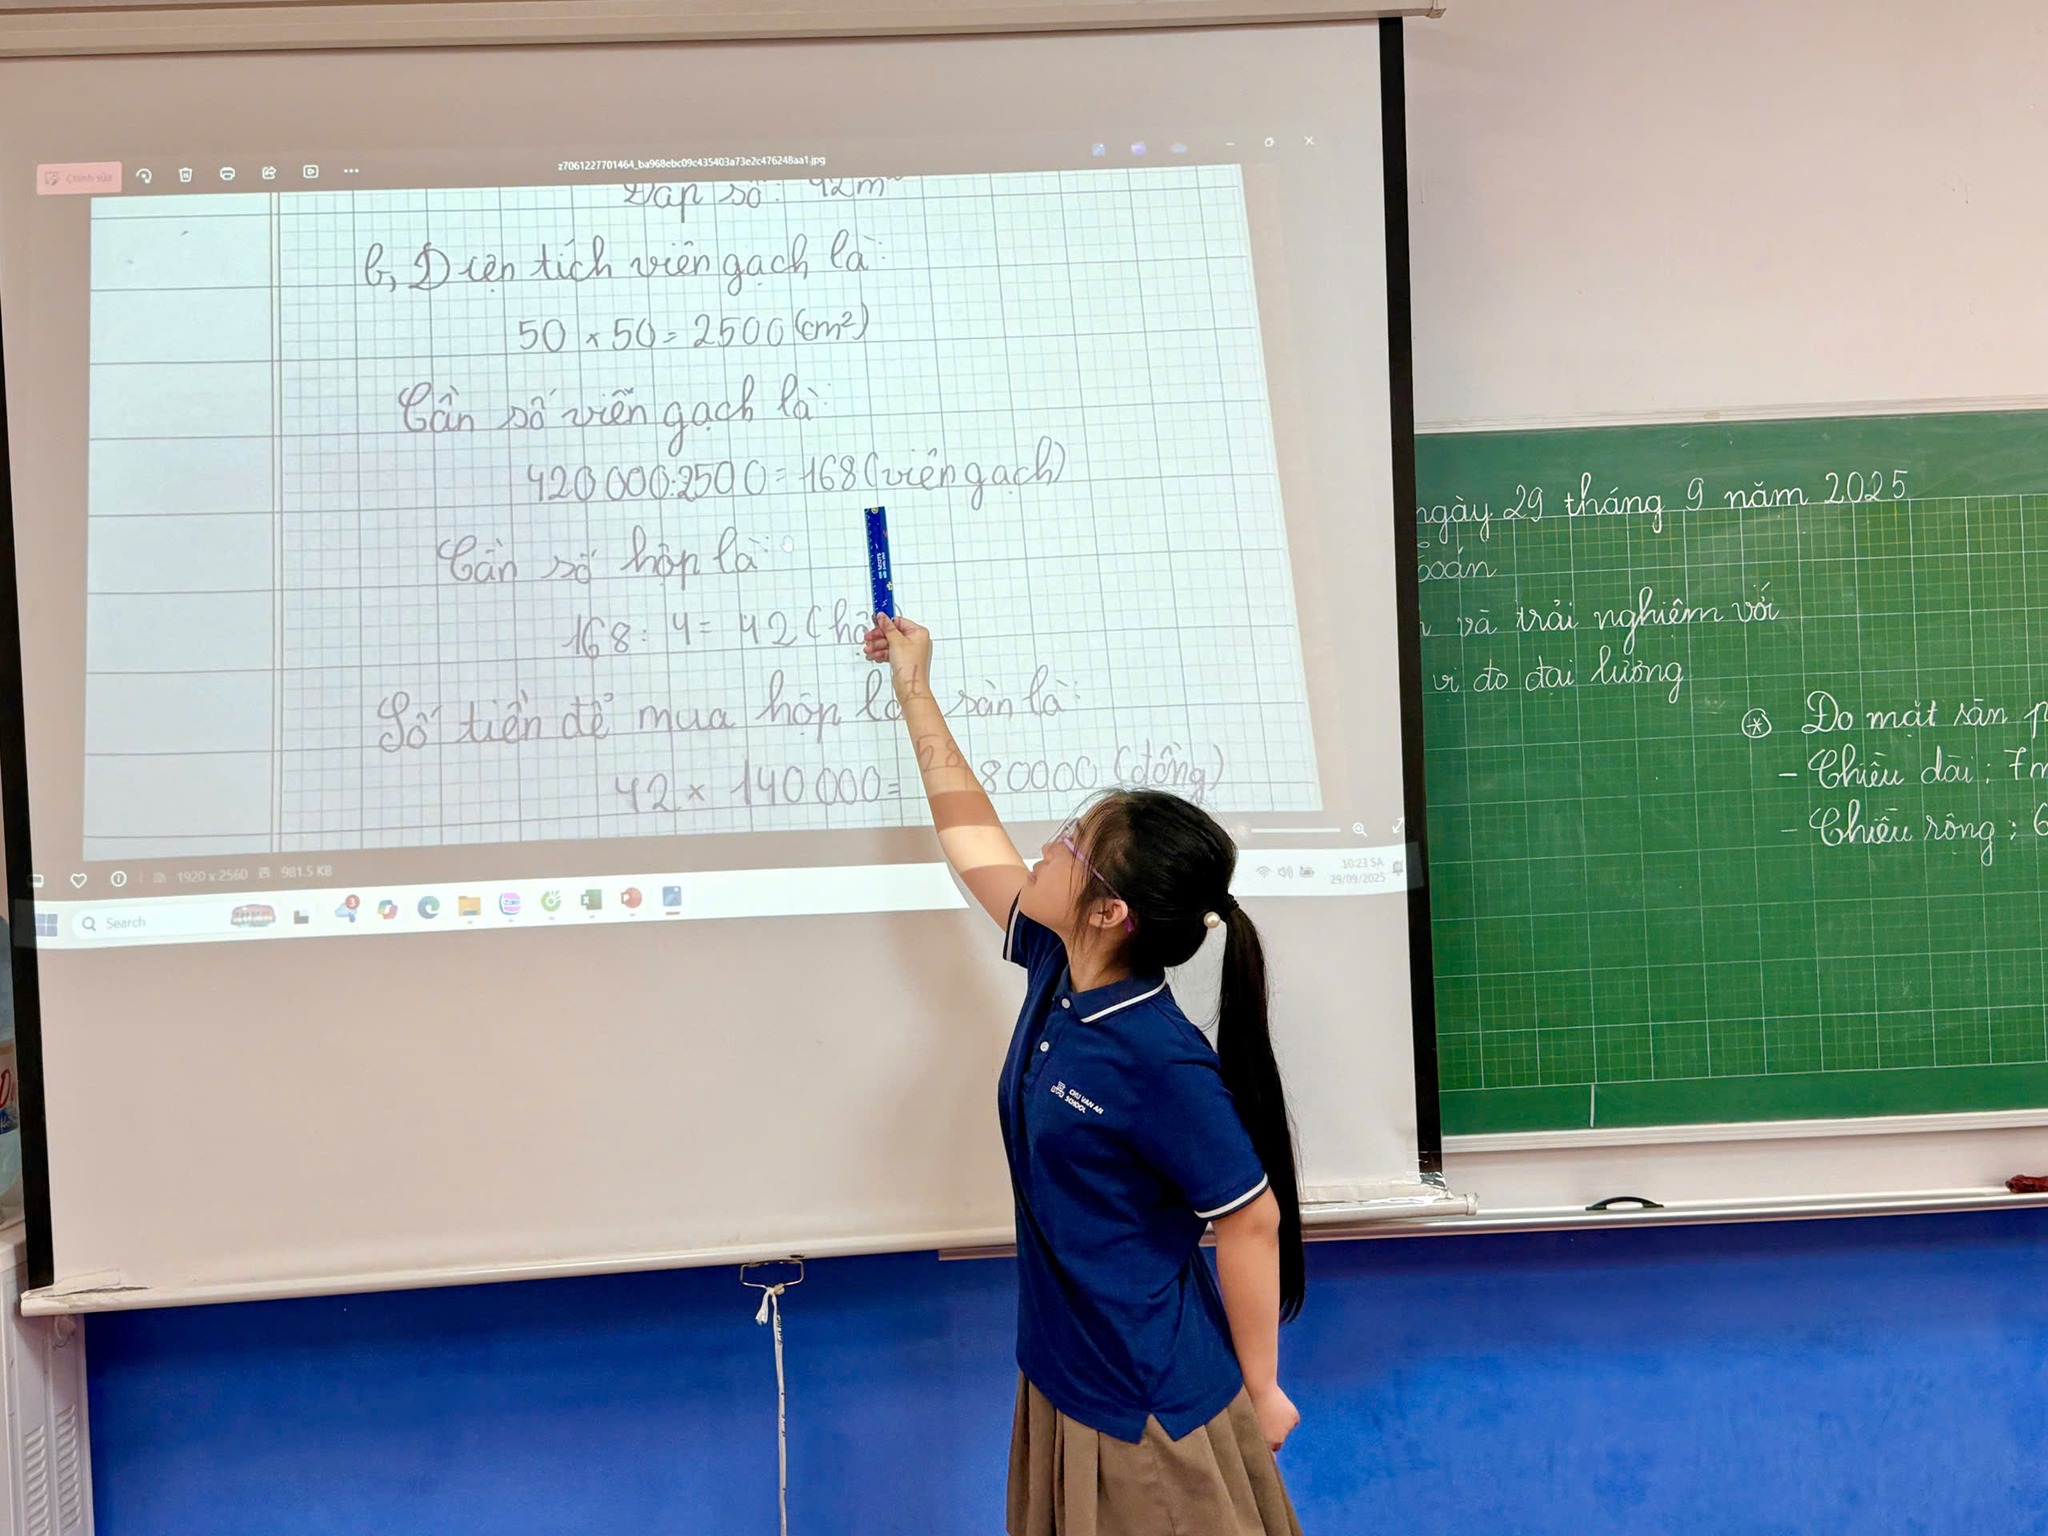 Chỉnh sửa
z7061227701464_ba968ebc09c435403a73e2c476248aa1.jpg
Đáp số: 42m²
b, Diện tích viên gạch là:
50 × 50 = 2500 (cm²)
Cần số viên gạch là:
420 000 : 2500 = 168 (viên gạch)
Cần số hộp là:
168 : 4 = 42 (hộ
Số tiền để mua hộp lát sàn là:
42 × 140 000 = 58 80000 (đồng)
1920 x 2560 981.5 KB
Search
3
10:23 SA
29/09/2025
ngày 29 tháng 9 năm 2025
oán
và trải nghiệm với
vị đo đại lượng
* Đo mặt sàn p
- Chiều dài: 7m
- Chiều rộng: 6
CHU VAN AN
SCHOOL